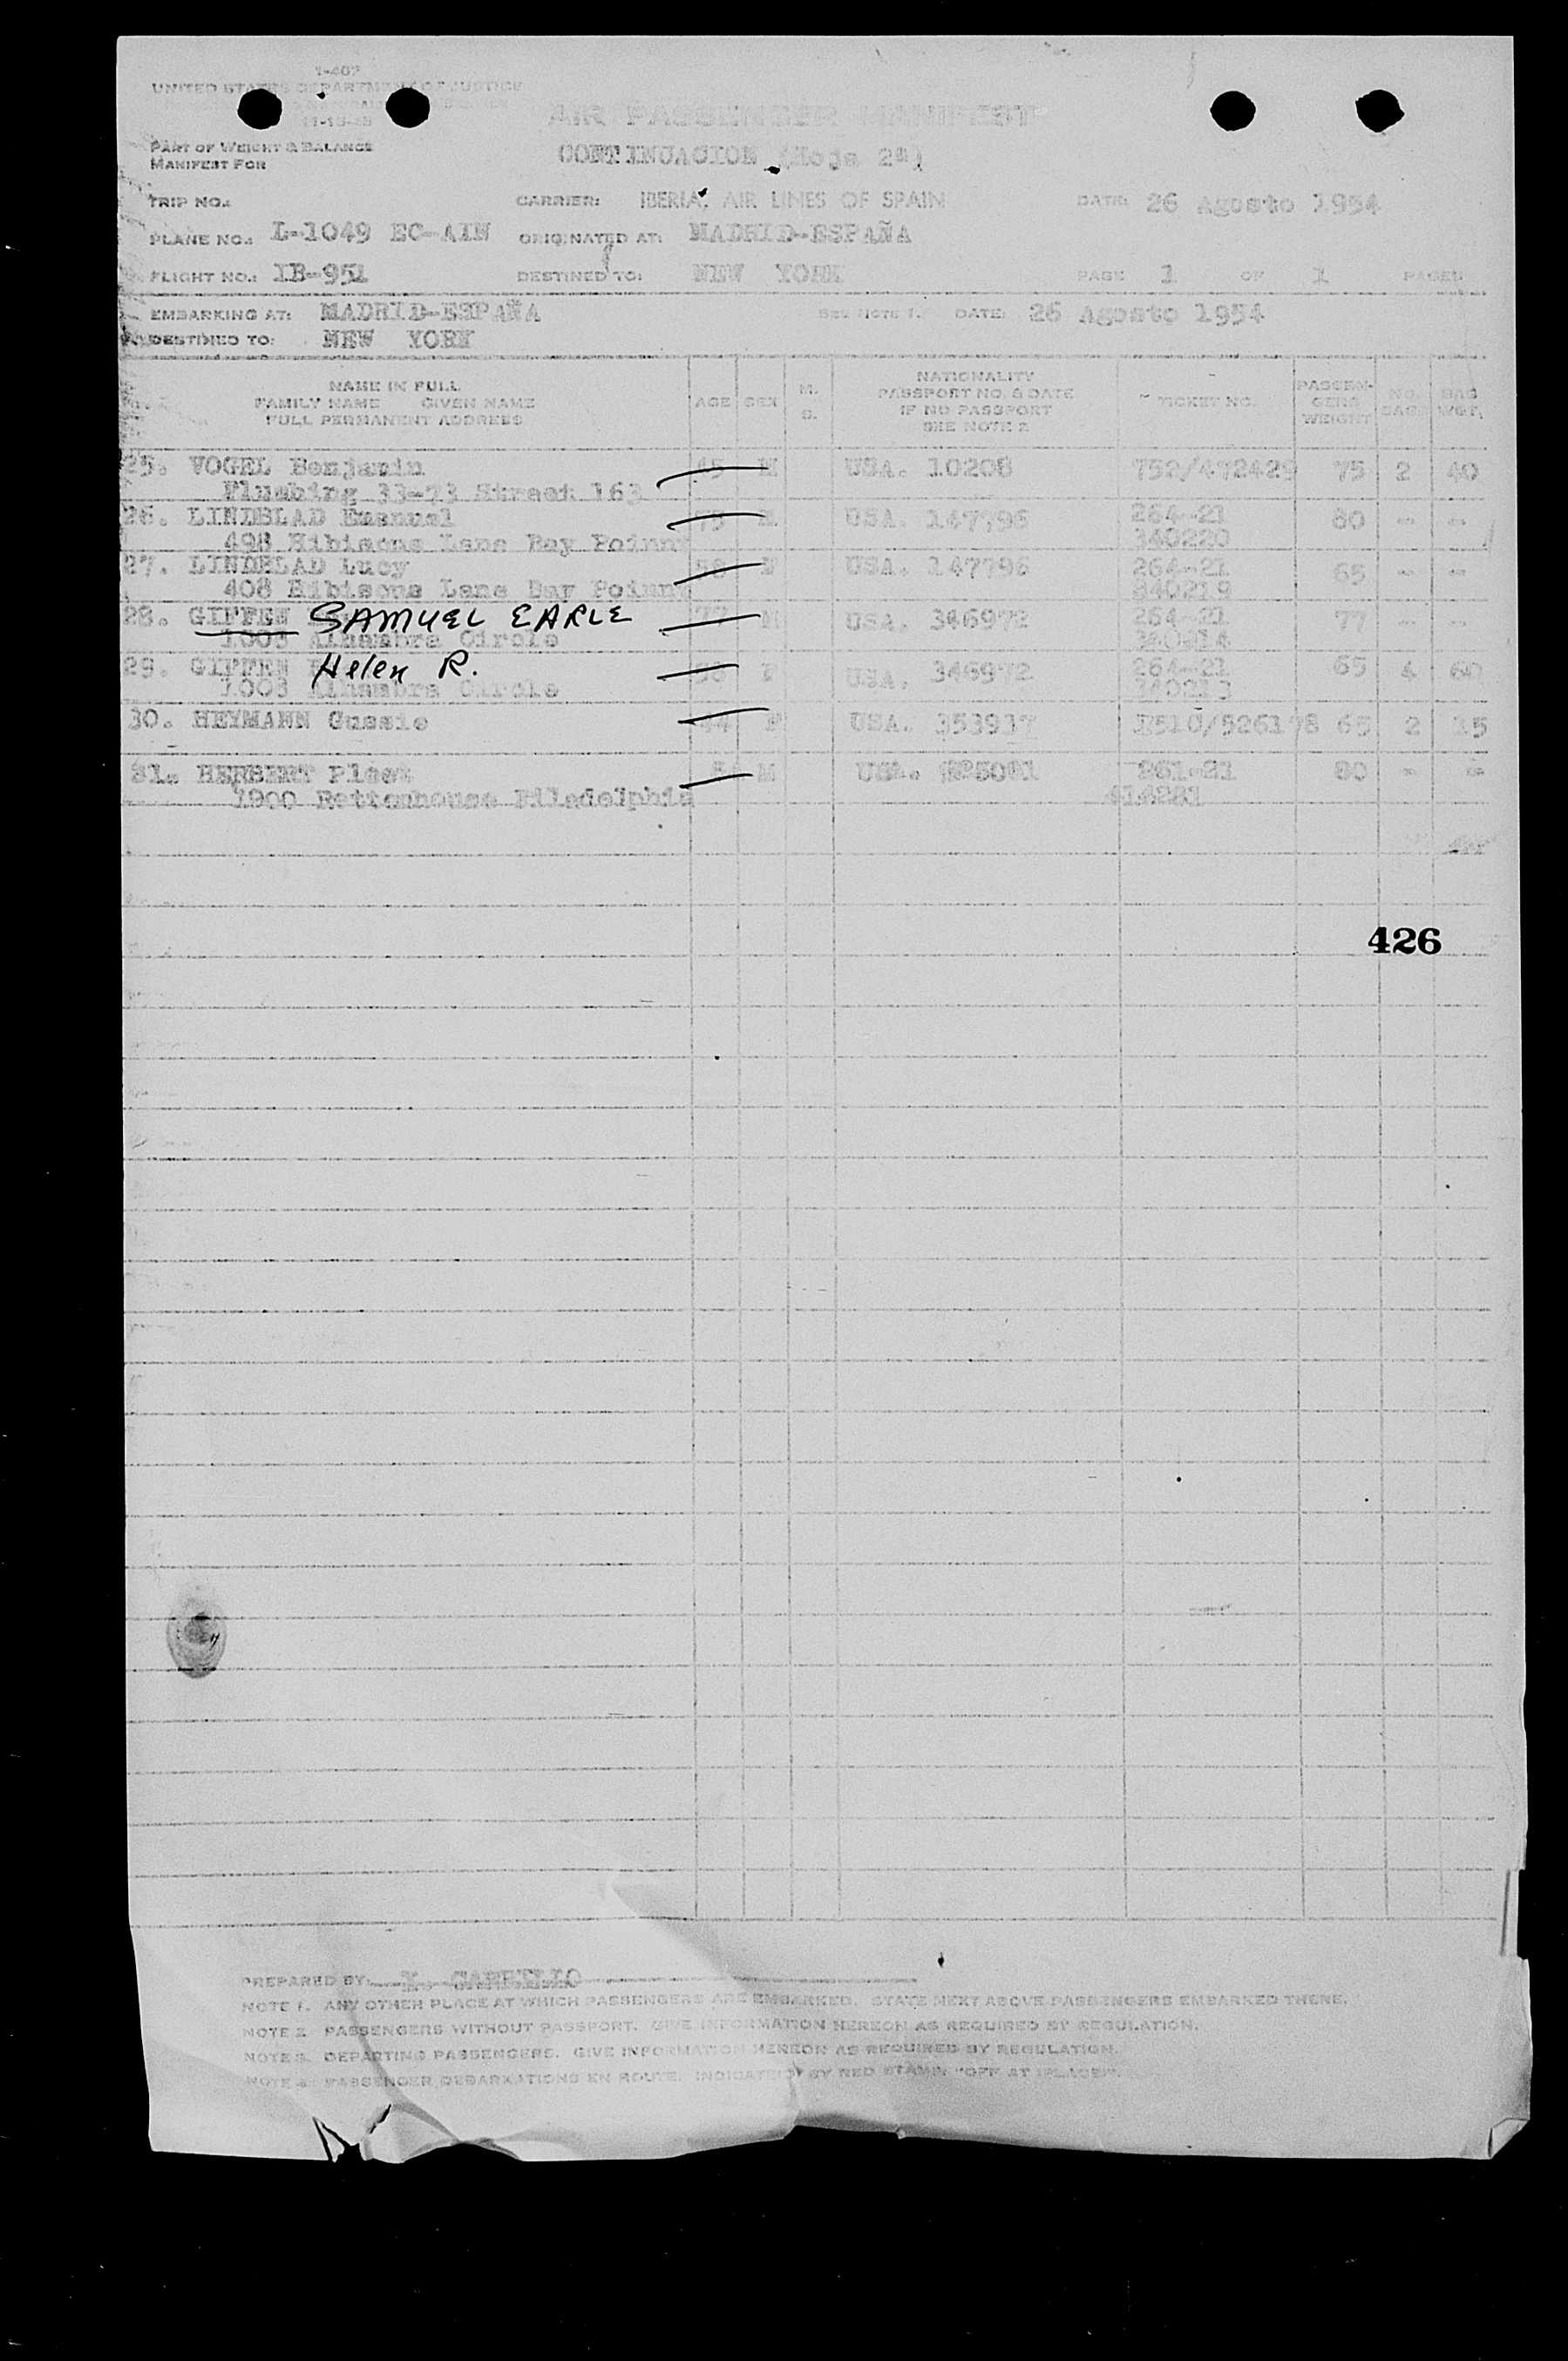 I-407
UNITED STATES DEPARTMENT OF JUSTICE
AIR PASSENGER MANIFEST
PART OF WEIGHT & BALANCE
MANIFEST FOR
CONTINUACION (Hoja 2ª)
TRIP NO.: CARRIER: IBERIA, AIR LINES OF SPAIN DATE: 26 Agosto 1954
PLANE NO.: L-1049 EC-AIN ORIGINATED AT: MADRID-ESPAÑA
FLIGHT NO.: IB-951 DESTINED TO: NEW YORK PAGE 1 OF 1 PAGES
EMBARKING AT: MADRID-ESPAÑA SEE NOTE 1. DATE: 26 Agosto 1954
DESTINED TO: NEW YORK
NAME IN FULL
FAMILY NAME GIVEN NAME
FULL PERMANENT ADDRESS
AGE SEX M. S.
NATIONALITY
PASSPORT NO. & DATE
IF NO PASSPORT
SEE NOTE 2
TICKET NO.
PASSENGERS WEIGHT
NO. BAGS
BAG WGT.
25. VOGEL Benjamin 45 M USA. 10208 752/472429 75 2 40
Flushing 33-73 Street 163
26. LINDBLAD Emanuel 75 M USA. 147796 264-21 80 - -
498 Hibiscus Lane Bay Poinny 340220
27. LINDBLAD Lucy 58 F USA. 147796 264-21 65 - -
408 Hibiscus Lane Bay Poinny 340219
28. GIFFEN SAMUEL EARLE M USA. 346972 264-21 77 - -
1003 Alhambra Circle 340214
29. GIFFEN Helen R. F USA. 346972 264-21 65 4 60
1003 Alhambra Circle 340213
30. HEYMANN Gussie 44 F USA. 353937 65 2 15
31. HERBERT Pleet M USA. 261-21 80 - -
1900 Rettenhouse Filadelphia 414281
426
PREPARED BY:
NOTE 1. ANY OTHER PLACE AT WHICH PASSENGERS ARE EMBARKED. STATE NEXT ABOVE PASSENGERS EMBARKED THERE.
NOTE 2. PASSENGERS WITHOUT PASSPORT. GIVE INFORMATION HEREON AS REQUIRED BY REGULATION.
NOTE 3. DEPARTING PASSENGERS. GIVE INFORMATION HEREON AS REQUIRED BY REGULATION.
NOTE 4. PASSENGER DEBARKATIONS EN ROUTE. INDICATED BY RED STAMP "OFF AT (PLACE)".